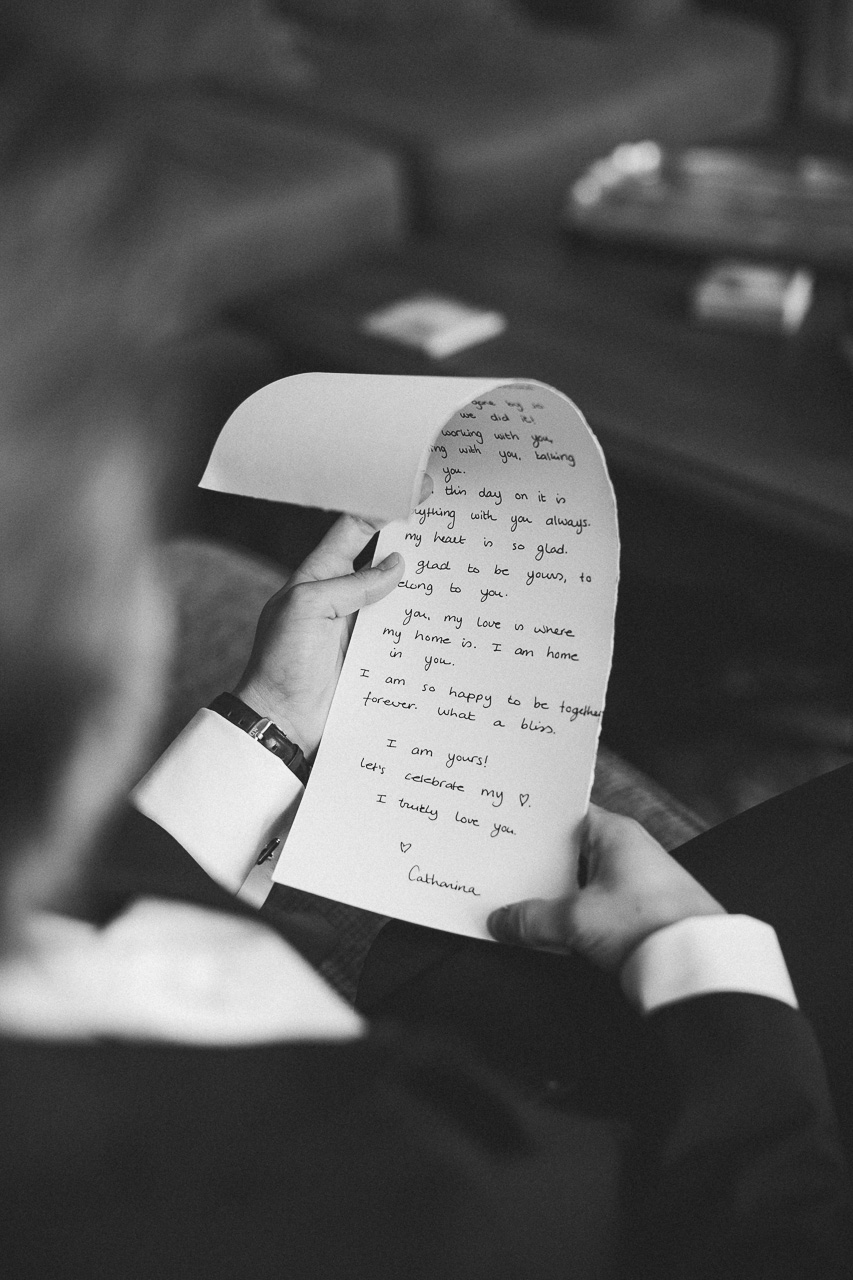 we did it!
working with you,
ing with you, talking
you.
this day on it is
ything with you always.
my heart is so glad.
glad to be yours, to
elong to you.
you, my love is where
my home is. I am home
in you.
I am so happy to be together
forever. What a bliss.
I am yours!
let's celebrate my ♡.
I trutly love you.
♡
Catharina